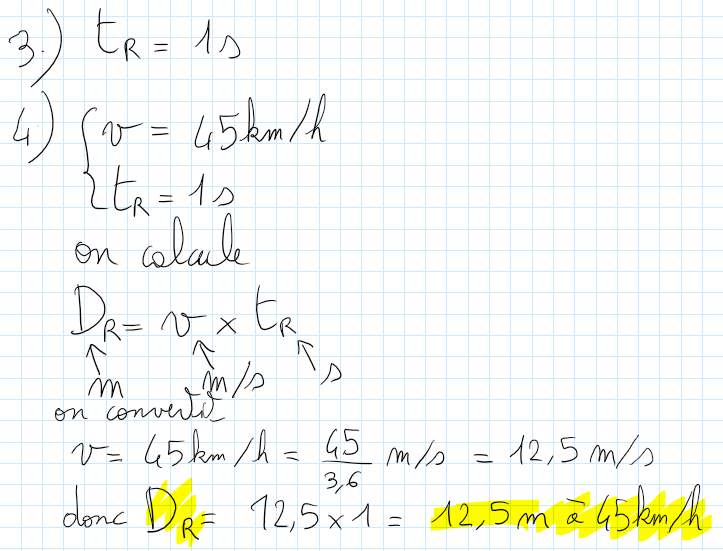 3.) tR = 1s
4) { v = 45km/h
tR = 1s
on calcule
DR = v × tR
↑ m ↑ m/s ↑ s
on convertit
v = 45km/h = 45/3,6 m/s = 12,5 m/s
donc DR = 12,5 × 1 = 12,5 m à 45km/h